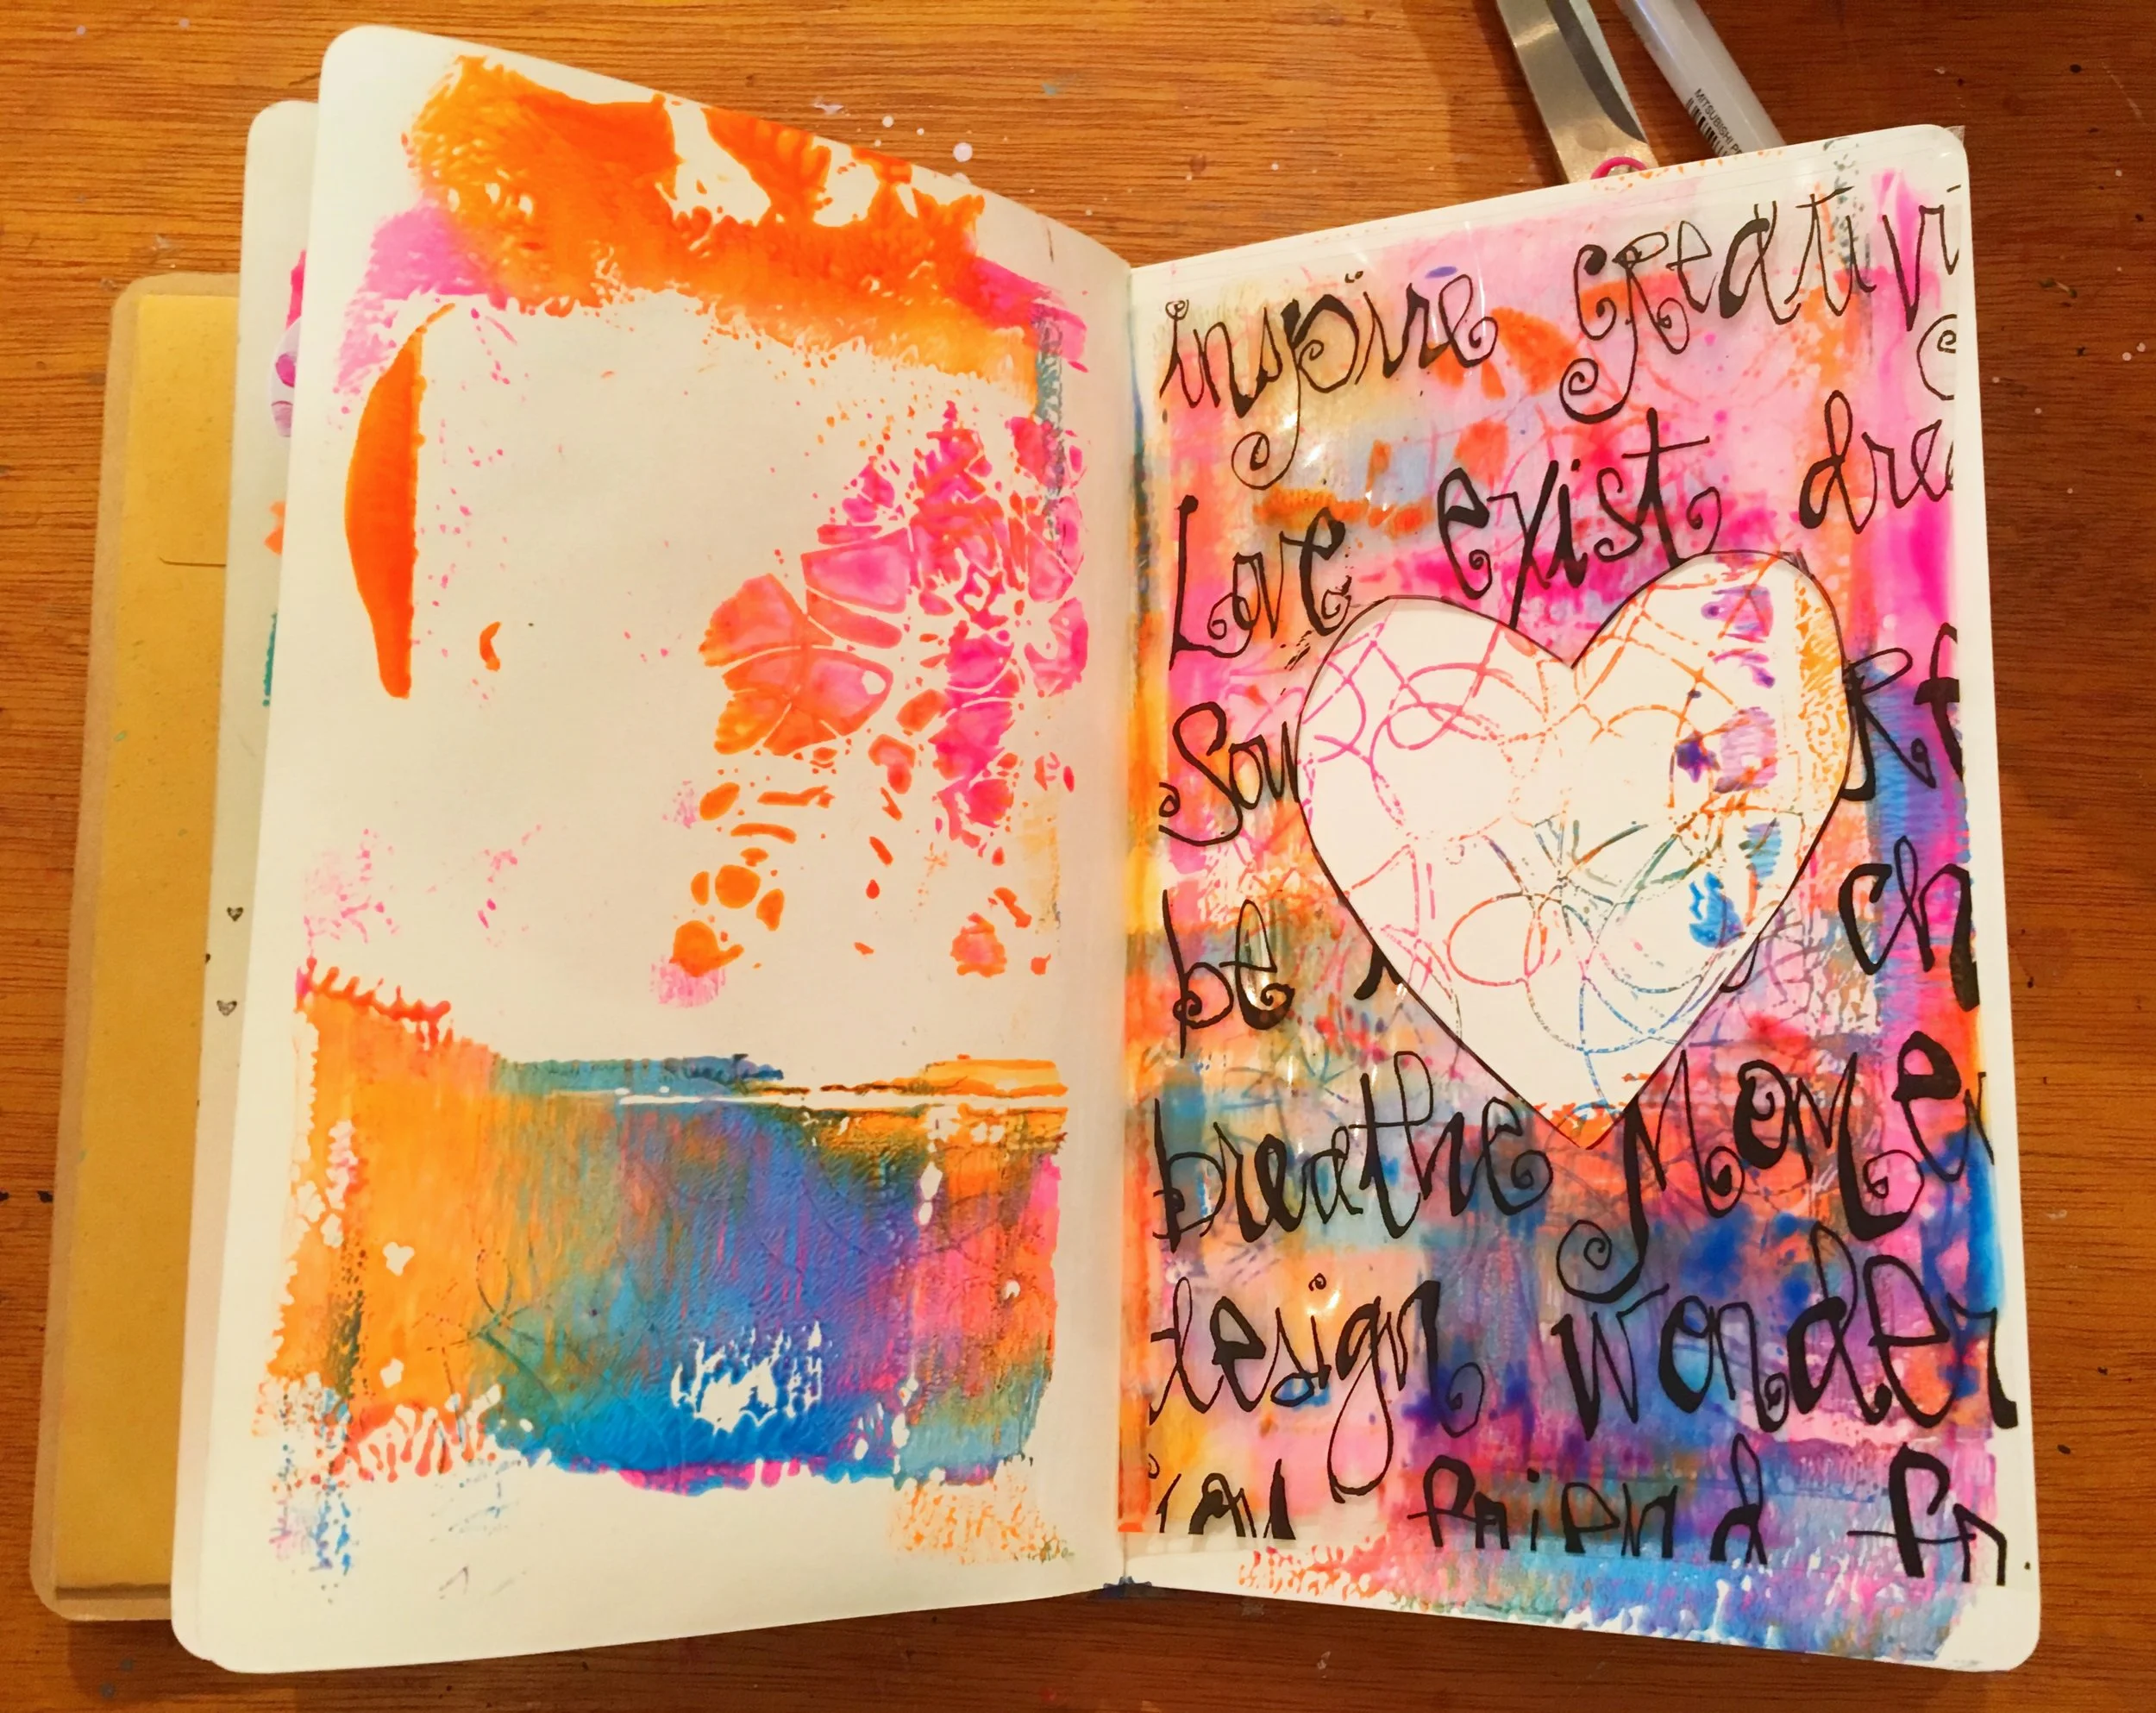 MITSUBISHI P
inspire creativi
Love exist drea
Sou
be ch
breathe Momen
design wonder
friend fr